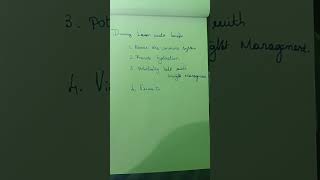 Drinking Lemon water benefits
1. Boosts the immune system
2. Promote hydration
3. Potentially help with
Weight Management
4. Vitamin C